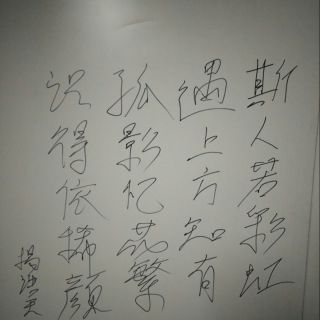 斯人若彩虹
遇上方知有
孤影忆花繁
识得依稀颜